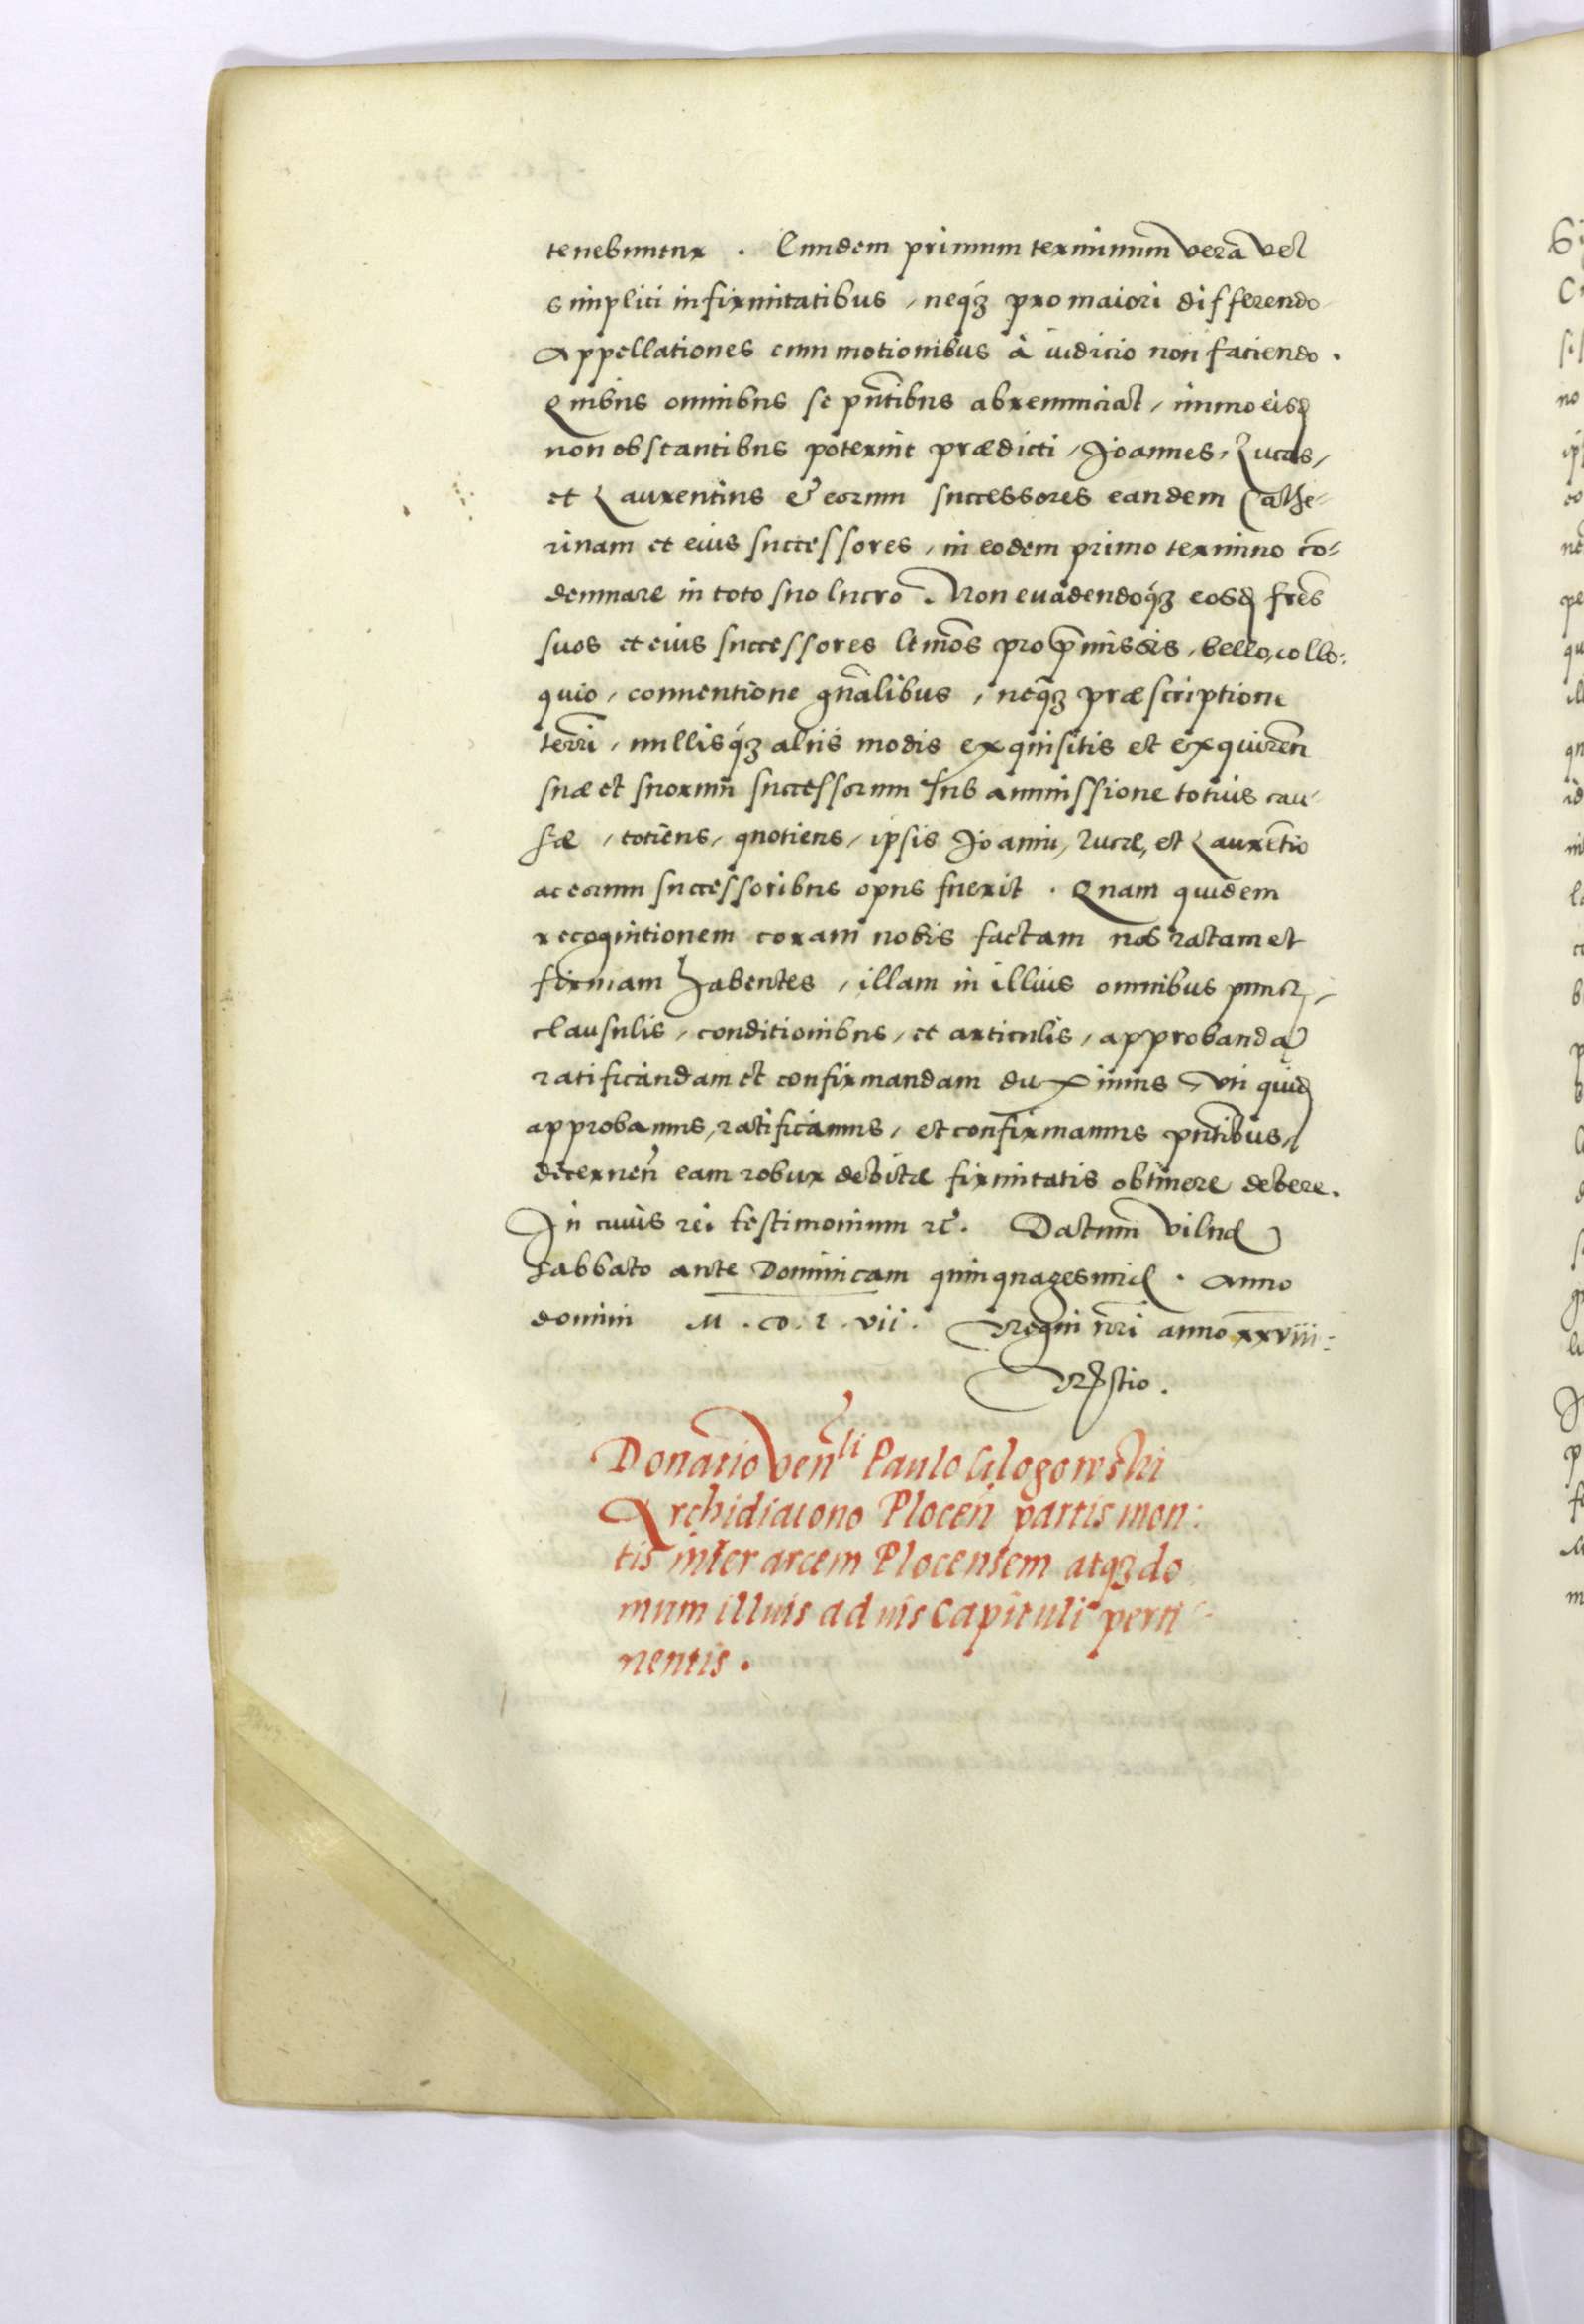 tenebuntur . Eundem primum terminum vera vel
simplici infirmitatibus, neqȝ pro maiori differendo
Appellationes cum motionibus à iudicio non faciendo.
Quibus omnibus se pñtibus abrenunciat, immo eisdꝫ
non obstantibus poterint prædicti, Joannes, Lucas,
et Laurentius & eorum successores eandem Cathe-
rinam et eius successores, in eodem primo termino cō-
demnare in toto suo lucro. Non evadendoqȝ eosdꝫ fres
suos et eius successores ltimos pro p̄missis, bello, collo-
quio, conventione gnalibus, neqȝ præscriptione
terri, nullisqȝ aliis modis exquisitis et exquiren
suæ et suorum successorum sub ammissione totius cau-
sæ, totiens, quotiens, ipsis Joanni, Lucæ, et Laurētio
ac eorum successoribus opus fuerit. Quam quidem
recognitionem coram nobis factam nos ratam et
firmam habentes, illam in illius omnibus punct,
clausulis, conditionibus, et articulis, approbandā
ratificandam et confirmandam duximus, uti quidꝫ
approbamus, ratificamus, et confirmamus pñtibus,
decernen eam robur debitæ firmitatis obtinere debere.
In cuius rei testimonium ⁊c. Datum Vilnę
Sabbato ante Dominicam quinquagesimę. Anno
domini M.D.L.vii. Regni nri anno xxviii.
Donatio ven̄li Paulo Glogowski
Archidiacono Plocen partis mon:
tis inter arcem Plocensem atqȝ do
mum illius ad ius Capituli perti-
nentis.